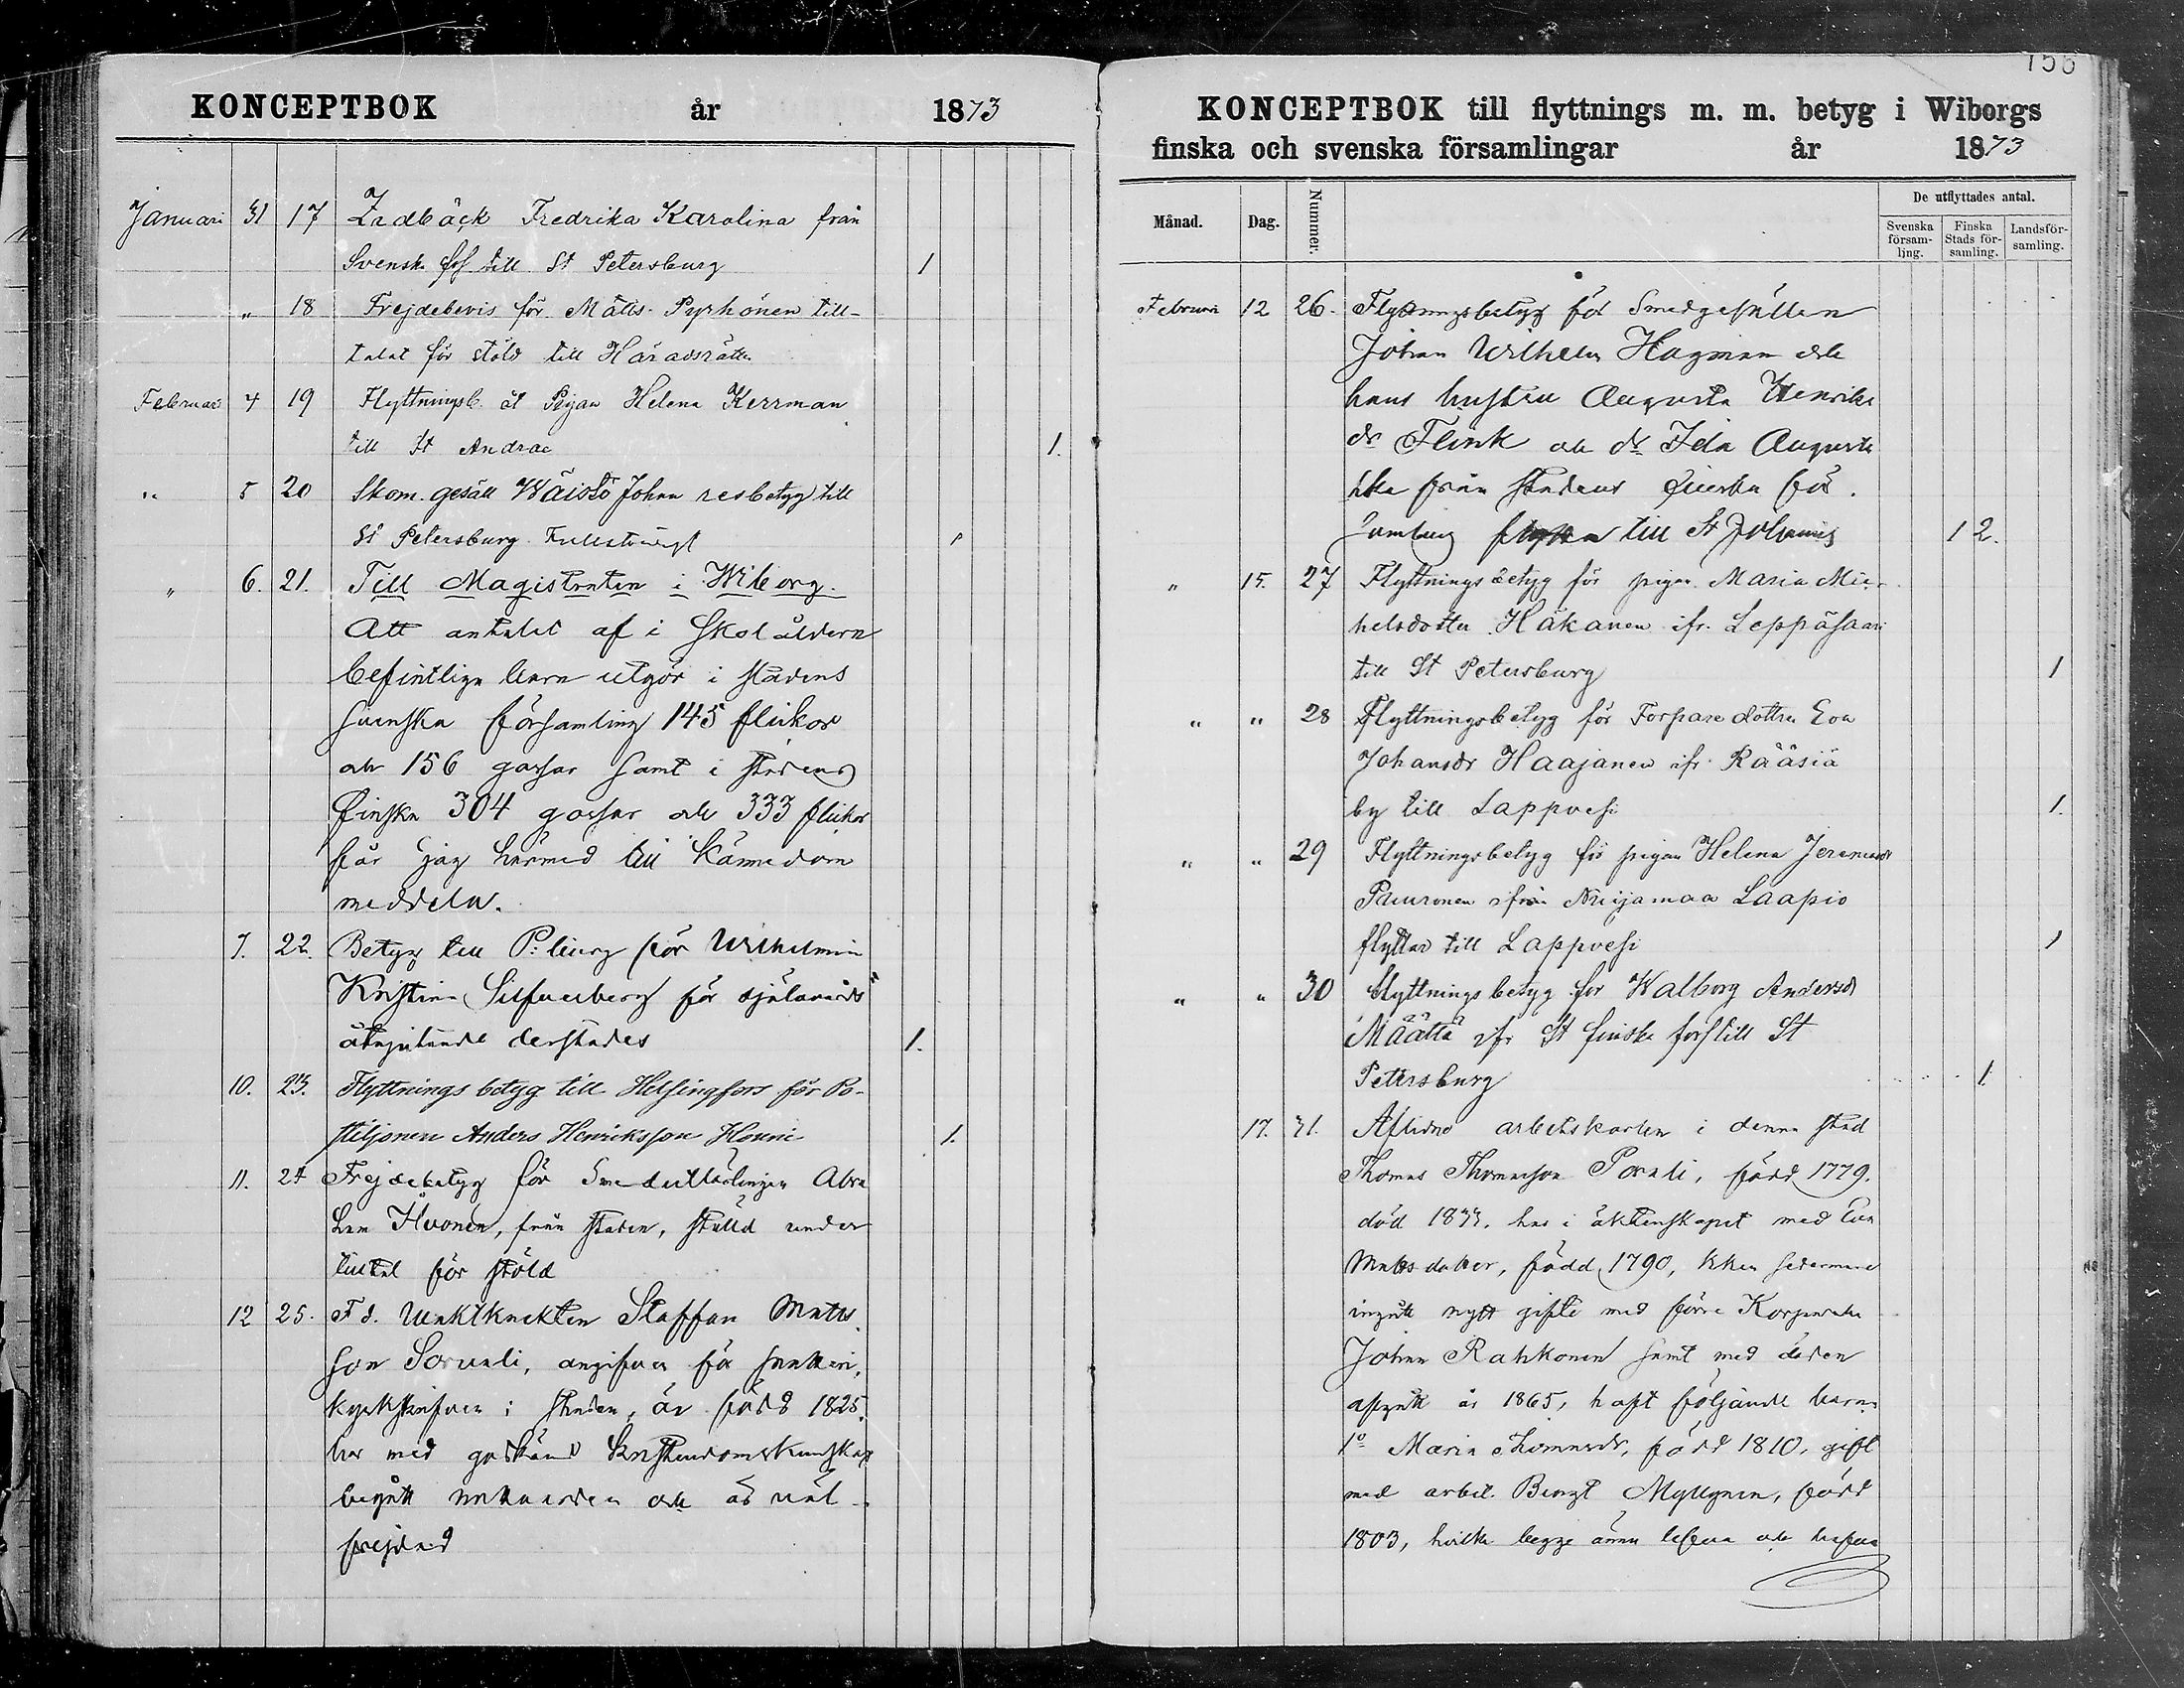 KONCEPTBOK år 1873
Januari 31 17 Zadbäck Fredrika Karolina från
Svensk förs till St Petersburg 1
" 18 Frejdebevis för Matts Pyrhönen till-
talat för stöld till Häradsrätten
Februari 4 19 Flyttningsb. åt Pigan Helena Kerrman
till St Andrae 1.
" 5 20 Skom. gesäll Wäistö Johan resbetyg till
St Petersburg 1
" 6. 21. Till Magistraten i Wiborg.
Att antalet af i Skolåldern
befintliga barn utgör i stadens
svenska församling 145 flickor
och 156 gossar samt i stadens
finska 304 gossar och 333 flickor
får jag härmed till kännedom
meddela.
7. 22. Betyg till P:burg för Wilhelmin
Kristina Silfverberg för själavårds
åtnjutande derstädes 1.
10. 23. Flyttnings betyg till Helsingfors för Po-
stiljonen Anders Henriksson Honni 1.
11. 24 Frejdebetyg för Abra
ham Ihonen, från staden, ställd under
tilltal för stöld
12 25. F d. Vaktknekten Staffan Matts
son Sorvali, angifven för
i staden, är född 1825,
har med godkänd kristendomskunskap
begått nattvarden och är väl
frejdad
156
KONCEPTBOK till flyttnings m. m. betyg i Wiborgs
finska och svenska församlingar år 1873
Månad. Dag. Nummer. De utflyttades antal.
Svenska försam- ling. Finska Stads för- samling. Landsför- samling.
Februari 12 26. Flyttningsbetyg för Smedgesällen
Johan Wilhelm Hagman och
hans hustru Augusta Henriks
dr Flink och dr Ida Augusta
från stadens finska för.
samling flytta till St Johannis 1 2.
" 15. 27 Flyttnings betyg för pigan Maria Mic-
helsdotter Häkanen ifr. Leppäsaari
till St Petersburg 1
" " 28 Flyttningsbetyg för Torpare dottern Eva
Johansdr Haajanen ifr. Rääsiä
by till Lappvesi 1.
" " 29 Flyttningsbetyg för pigan Helena Jeremiasdr
Puuronen ifrån Nuijamaa Laapio
flyttar till Lappvesi 1
" " 30 Flyttnings betyg för Walborg Andersdr
Määttä ifr St finska förs till St
Petersburg 1.
17. 31. Aflidne arbetskarlen i denna stad
Thomas Thomasson Porali, född 1779.
död 1833. har i äktenskapet med Eva
Matsdotter, född 1790, som sedermera
ingått nytt gifte med förre
Johan Rahkonen samt med döden
afgått år 1865, haft följande barn:
1o Maria Thomasdr, född 1810, gift
med arbet. Bengt Myllynen, född
1803, hvilka begge ännu lefva och hafva